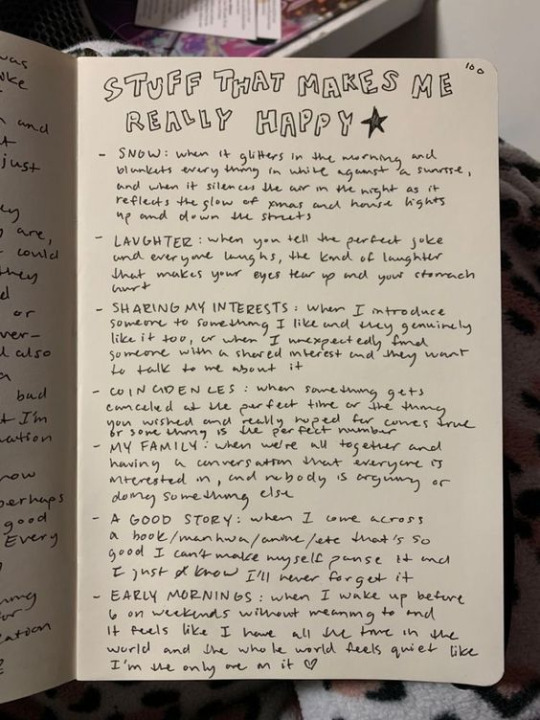 was
oke
t
and
just
ey
are,
could
they
d
or
ver-
l also
a
bad
t I'm
uation
now
perhaps
good
Every
100
STUFF THAT MAKES ME
REALLY HAPPY ★
- SNOW: when it glitters in the morning and
blankets everything in white against a sunrise,
and when it silences the air in the night as it
reflects the glow of xmas and house lights
up and down the streets
- LAUGHTER: when you tell the perfect joke
and everyone laughs, the kind of laughter
that makes your eyes tear up and your stomach
hurt
- SHARING MY INTERESTS: when I introduce
someone to something I like and they genuinely
like it too, or when I unexpectedly find
someone with a shared interest and they want
to talk to me about it
- COINCIDENCES: when something gets
canceled at the perfect time or the thing
you wished and really hoped for comes true
or something is the perfect number
- MY FAMILY: when we're all together and
having a conversation that everyone is
interested in, and nobody is arguing or
doing something else
- A GOOD STORY: when I come across
a book/manhwa/anime/etc that's so
good I can't make myself pause it and
I just know I'll never forget it
- EARLY MORNINGS: when I wake up before
6 on weekends without meaning to and
it feels like I have all the time in the
world and the whole world feels quiet like
I'm the only one on it ♡